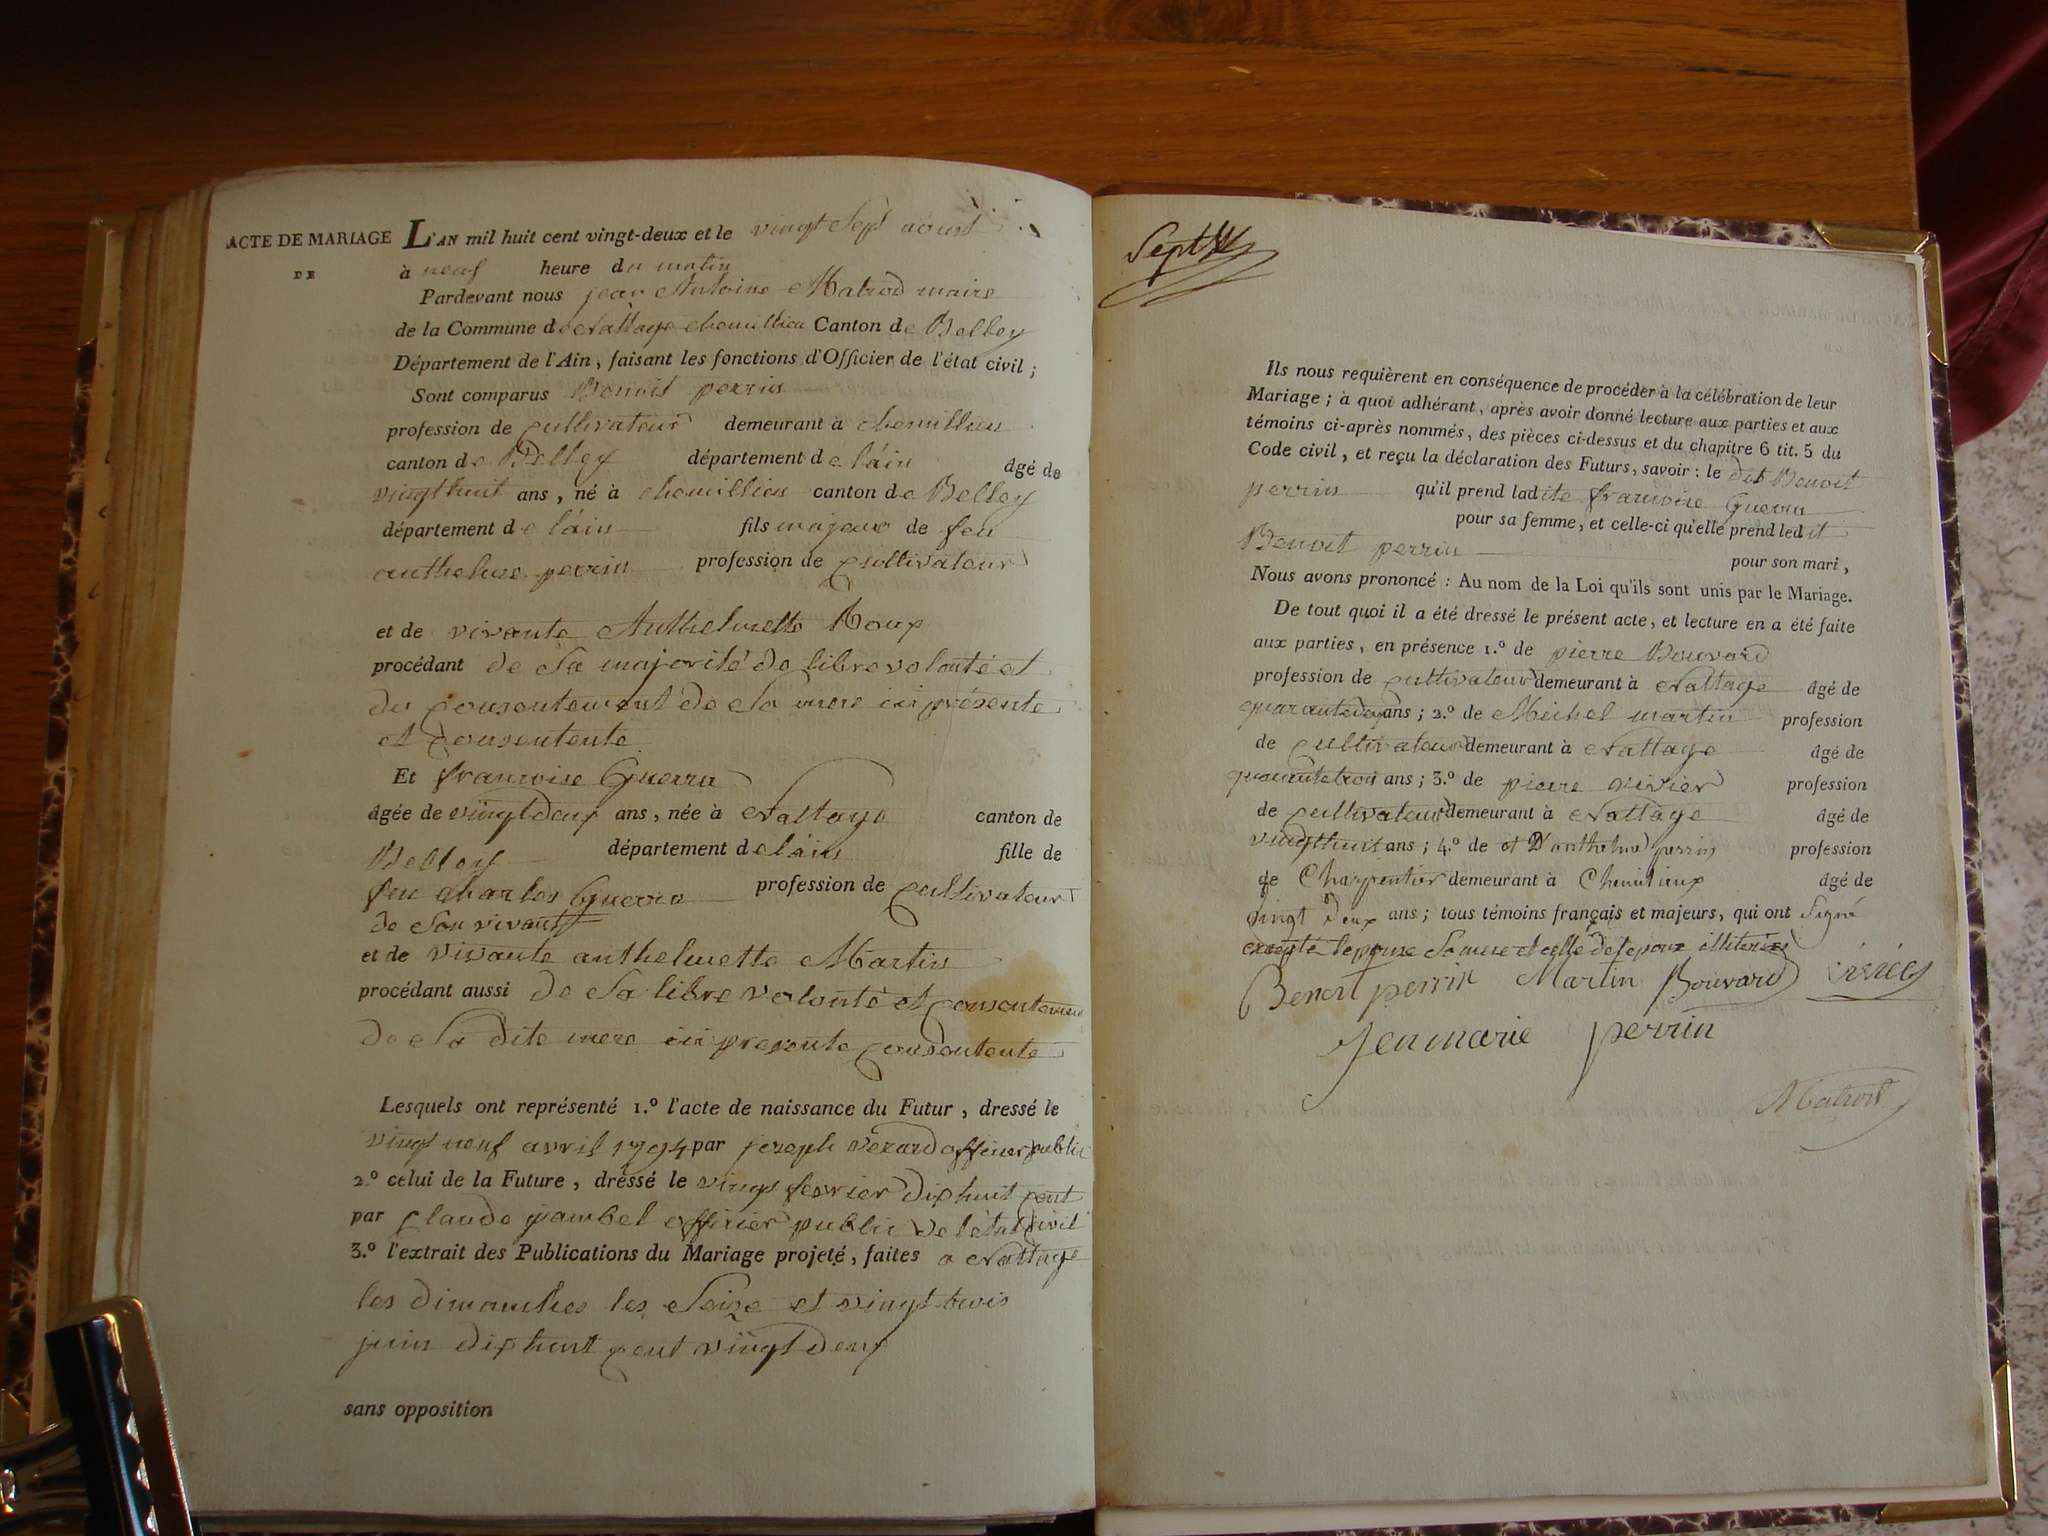 ACTE DE MARIAGE
DE
L'AN mil huit cent vingt-deux et le vingt sept aoust
à neuf heure du matin
Pardevant nous jean Antoine Matrod maire
de la Commune de Nattage chemillieu Canton de Belley
Département de l'Ain, faisant les fonctions d'Officier de l'état civil ;
Sont comparus Benoit perrin
profession de cultivateur demeurant à chemillieu
canton de Belley département de l'áin âgé de
vingt huit ans, né à chemillieu canton de Belley
département de l'áin fils majeur de feu
anthelme perrin profession de cultivateur
et de vivante Anthelmette Roux
procédant de sa majorité de libre volonté et
du consentement de sa mere ici présente
et consentente
Et francoise Guerra
âgée de vingt deux ans, née à Nattage canton de
Belley département de láin fille de
feu charles Guerra profession de cultivateur
de son vivant
et de vivante anthelmette Martin
procédant aussi de sa libre volonté et consentement
de sa dite mere ici presente consentente
Lesquels ont représenté 1.º l'acte de naissance du Futur, dressé le
vingt neuf avril 1794 par joseph verard officier public
2.º celui de la Future, dréssé le vingt fevrier dix huit cent
par Claude jambel officier public de l'état civil
3.º l'extrait des Publications du Mariage projeté, faites a Nattage
les dimanches les seize et vingt trois
juin dix huit cent vingt deux
sans opposition
Sept
Ils nous requièrent en conséquence de procéder à la célébration de leur
Mariage ; à quoi adhérant, après avoir donné lecture aux parties et aux
témoins ci-après nommés, des pièces ci-dessus et du chapitre 6 tit. 5 du
Code civil, et reçu la déclaration des Futurs, savoir : le dit Benoit
perrin qu'il prend ladite francoise Guerra
pour sa femme, et celle-ci qu'elle prend ledit
Benoit perrin pour son mari,
Nous avons prononcé : Au nom de la Loi qu'ils sont unis par le Mariage.
De tout quoi il a été dressé le présent acte, et lecture en a été faite
aux parties, en présence 1.º de pierre Bouvard
profession de cultivateur demeurant à Nattage âgé de
quarante ans ; 2.º de Michel martin profession
de cultivateur demeurant à Nattage âgé de
quarantetrois ans ; 3.º de pierre vivier profession
de cultivateur demeurant à Nattage âgé de
vingthuit ans ; 4.º de et D'anthelme perrin profession
de Charpentier demeurant à âgé de
vingt deux ans ; tous témoins français et majeurs, qui ont signé
excepté l'epouse sa mere et celle de l'epoux
Benoit perrin Martin Bouvard
Jenmarie perrin
Matrod